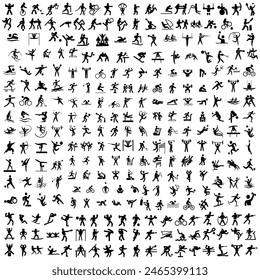 shutterstock
IMAGE ID: 2465399113
www.shutterstock.com